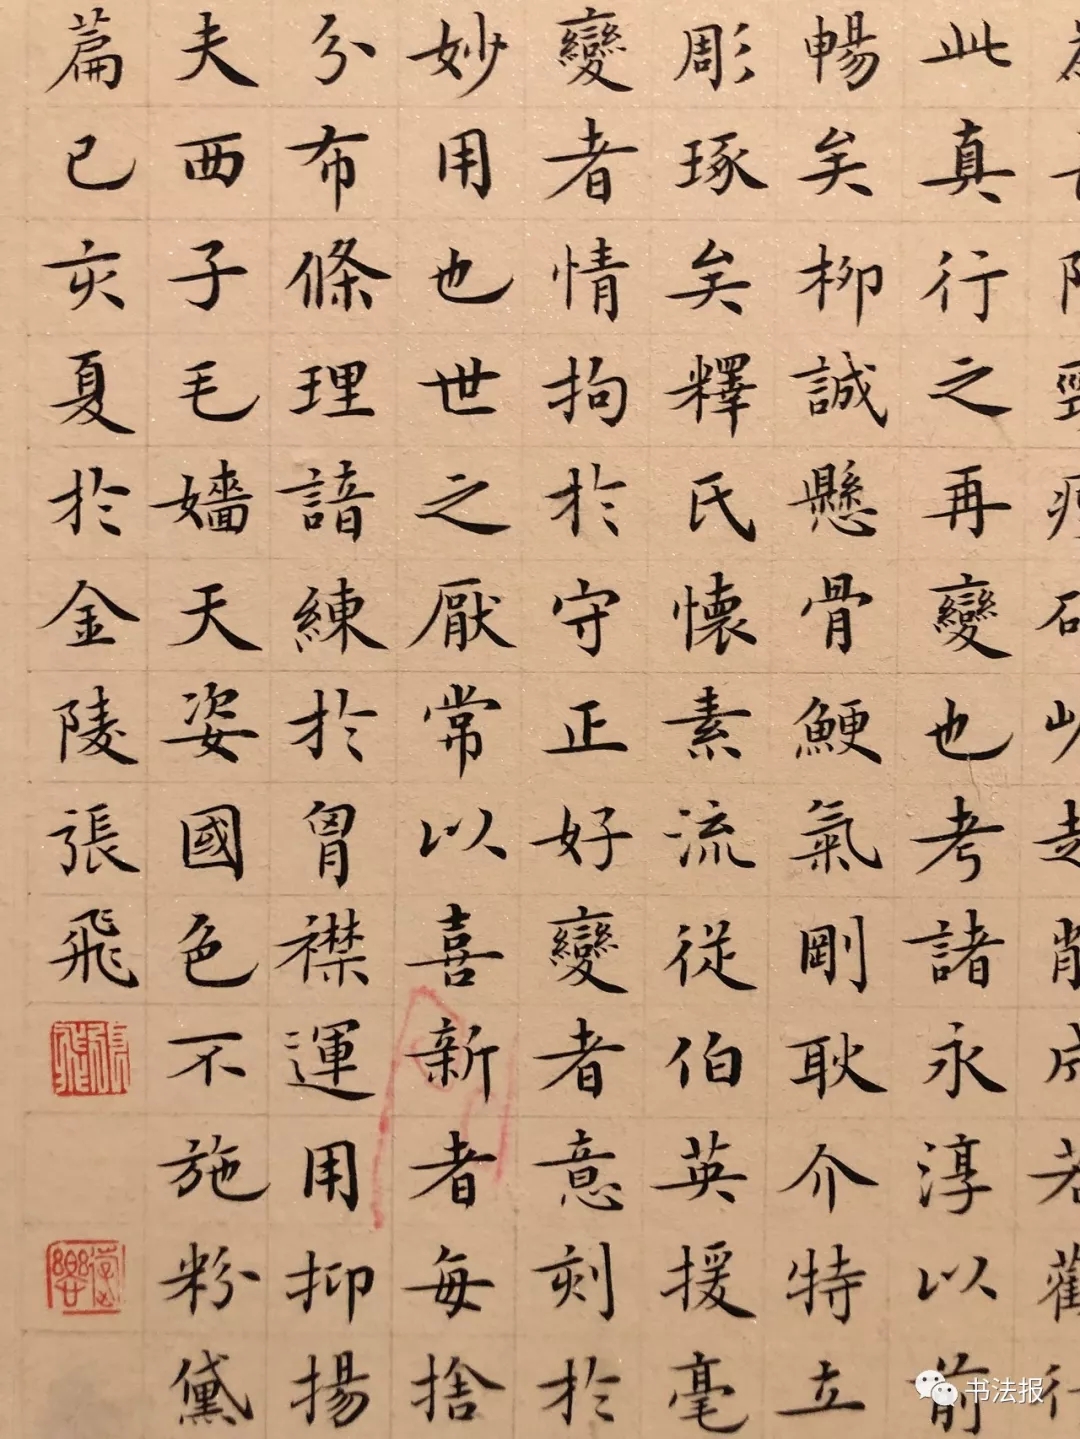 此真行之再變也考諸永淳以前
暢矣柳誠懸骨鯁氣剛耿介特立
彫琢矣釋氏懷素流從伯英援毫
變者情拘於守正好變者意刻於
妙用也世之厭常以喜新者每捨
分布條理諳練於胷襟運用抑揚
夫西子毛嬙天姿國色不施粉黛
篇已亥夏於金陵張飛
張飛
书法报